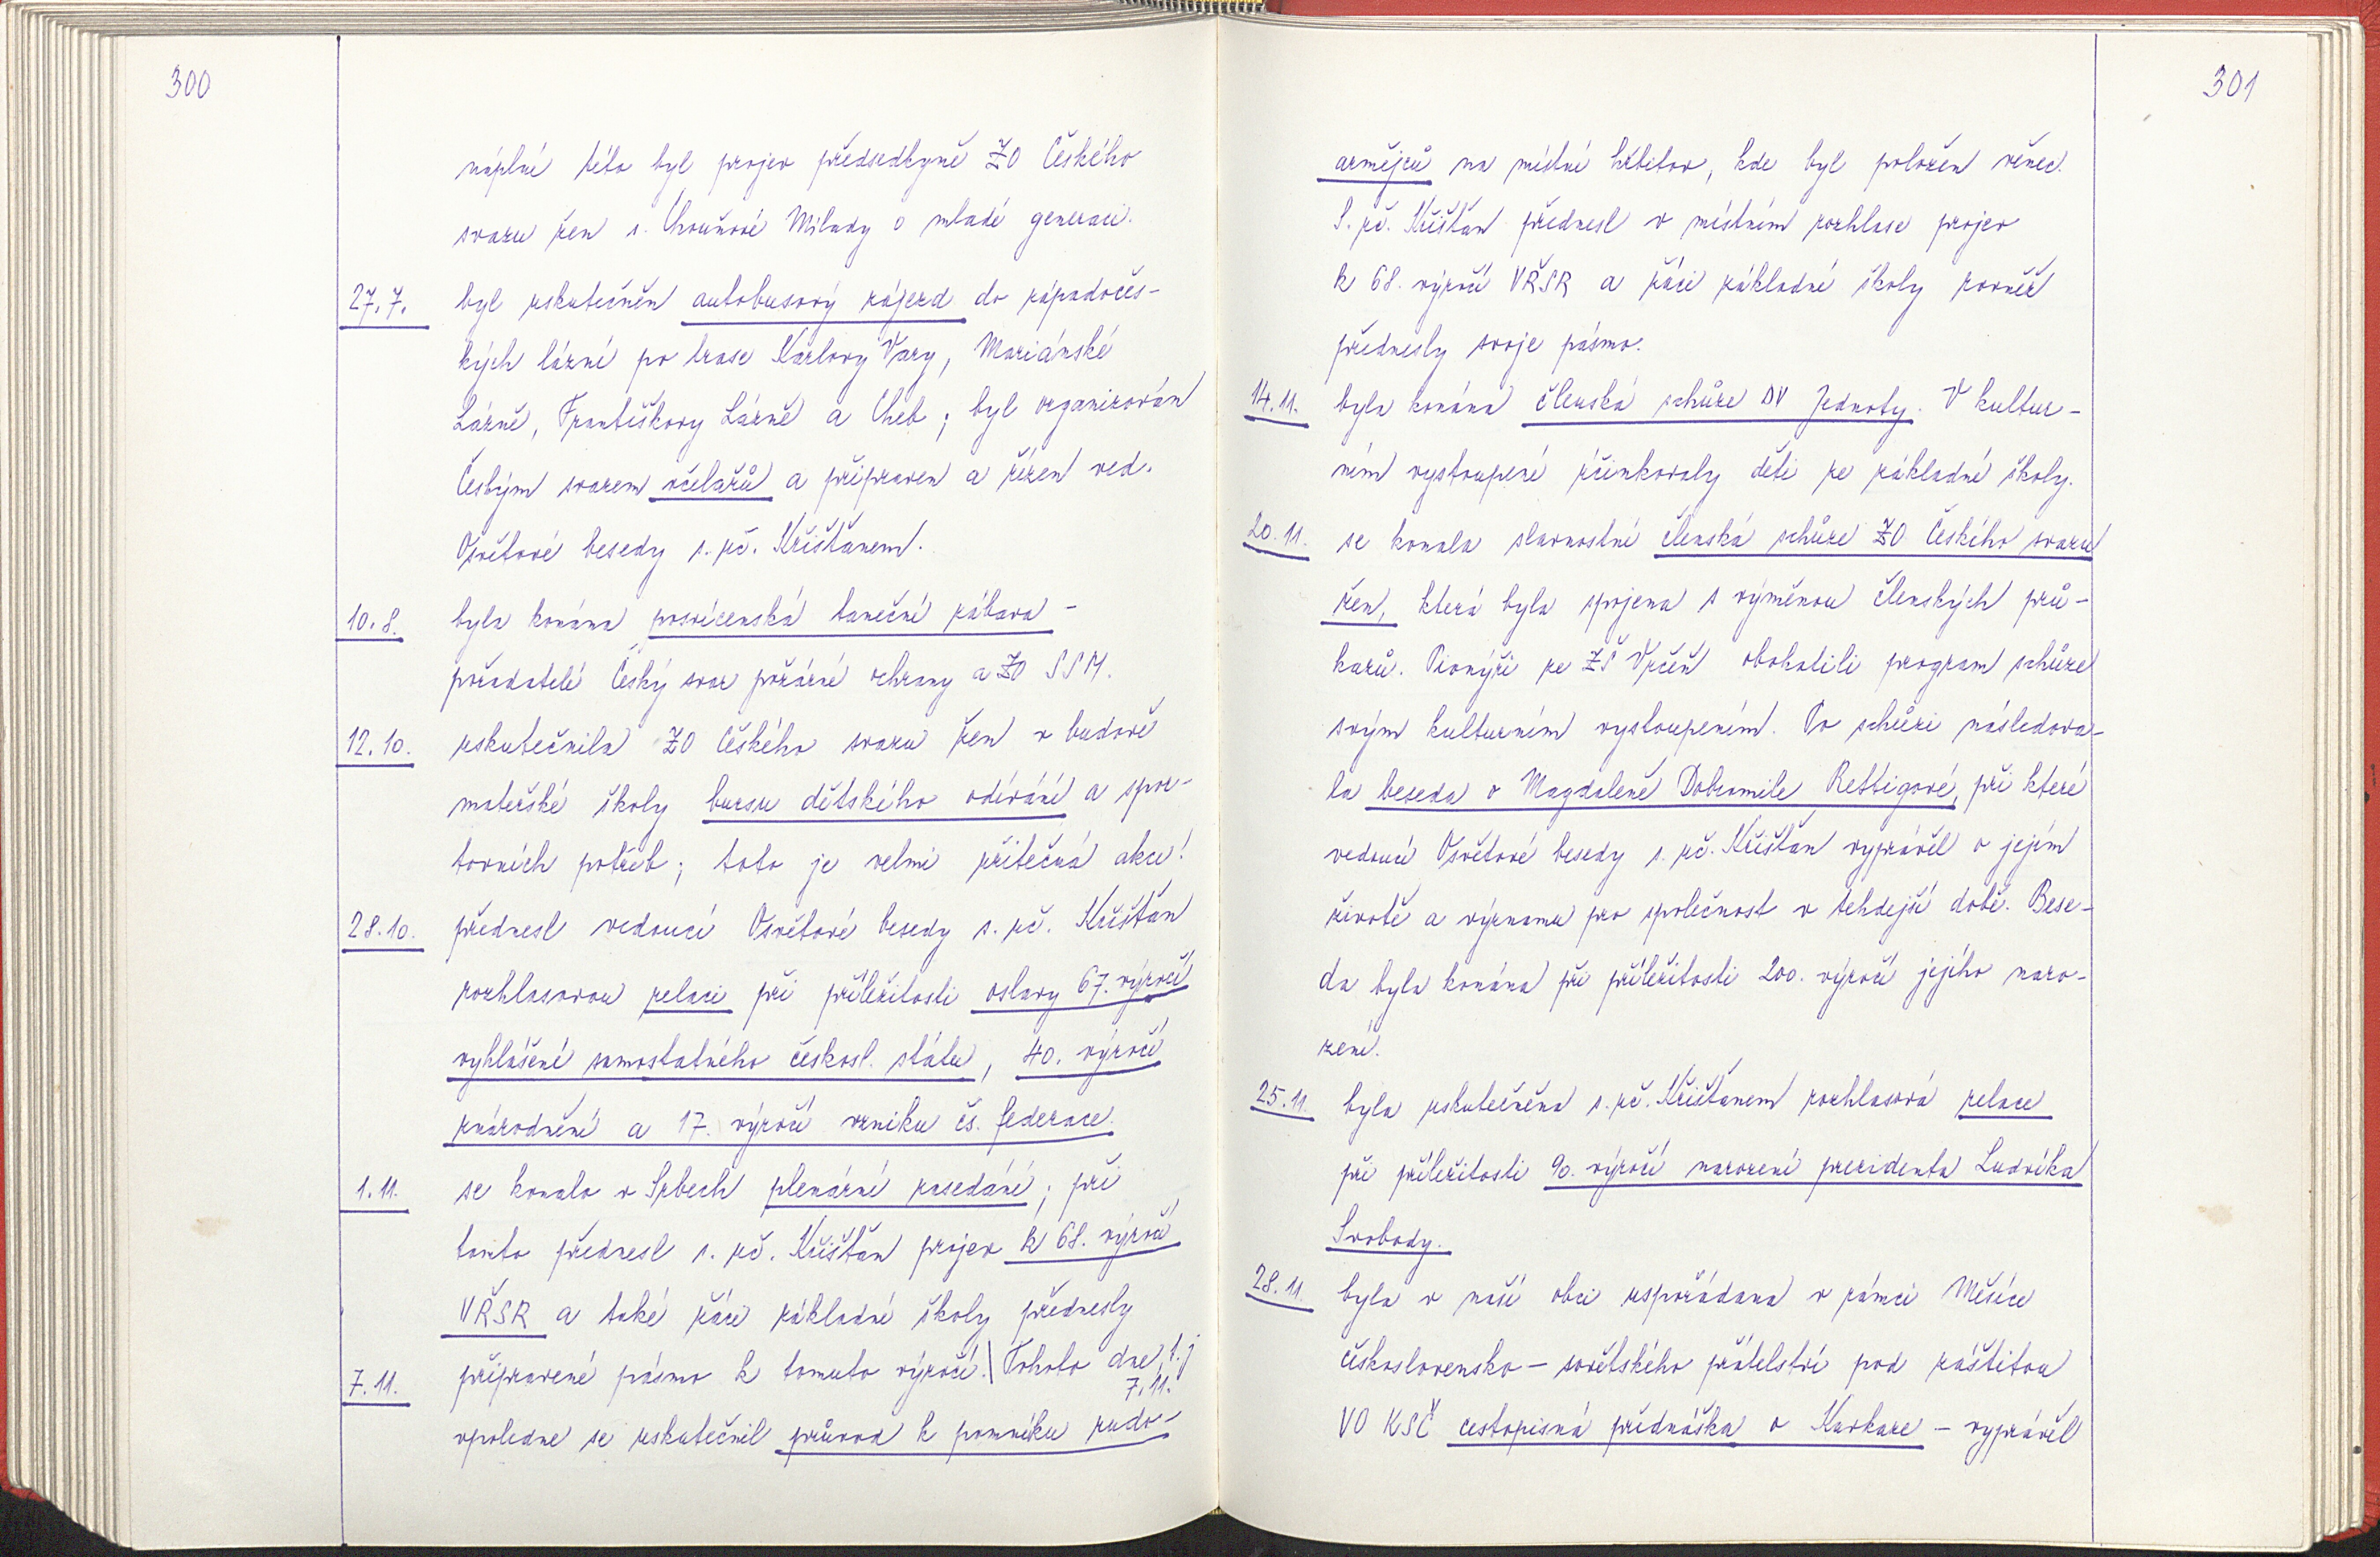 300
náplní této byl projev předsedkyně ZO Českého
svazu žen s. Chouňové Milady o mladé generaci.
27.7. byl uskutečněn autobusový zájezd do západočes-
kých lázní po trase Karlovy Vary, Mariánské
Lázně, Františkovy Lázně a Cheb; byl organizován
Českým svazem včelařů a připraven a řízen ved.
Osvětové besedy s. uč. Křišťanem.
10.8. byla konána posvícenská taneční zábava -
pořadatelé Český svaz požární ochrany a ZO SSM.
12.10. uskutečnila ZO Českého svazu žen v budově
mateřské školy bursu dětského odívání a spor-
tovních potřeb; toto je velmi užitečná akce!
28.10. přednesl vedoucí Osvětové besedy s. uč. Křišťan
rozhlasovou relaci při příležitosti oslavy 67. výročí
vyhlášení samostatného českosl. státu, 40. výročí
znárodnění a 17. výročí vzniku čs. federace.
1.11. se konalo v Srbech plenární zasedání; při
tomto přednesl s. uč. Křišťan projev k 68. výročí
VŘSR a také žáci základní školy přednesly
připravené pásmo k tomuto výročí. | Tohoto dne, t.j
7.11. 7.11.
vpoledne se uskutečnil průvod k pomníku rudo-
301
armějců na místní hřbitov, kde byl položen věnec.
S. uč. Křišťan přednesl v místním rozhlase projev
k 68. výročí VŘSR a žáci základní školy rovněž
přednesly svoje pásmo.
14.11. byla konána členská schůze DV Jednoty. V kultur-
ním vystoupení účinkovaly děti ze základní školy.
20.11. se konala slavnostní členská schůze ZO Českého svazu
žen, která byla spojena s výměnou členských prů-
kazů. Pionýři ze ZŠ Vrčeň obohatili program schůze
svým kulturním vystoupením. Po schůzi následova-
la beseda o Magdaleně Dobromile Rettigové, při které
vedoucí Osvětové besedy s. uč. Křišťan vyprávěl o jejím
životě a významu pro společnost v tehdejší době. Bese-
da byla konána při příležitosti 200. výročí jejího naro-
zení.
25.11. byla uskutečněna s. uč. Křišťanem rozhlasová relace
při příležitosti 90. výročí narození prezidenta Ludvíka
Svobody.
28.11. byla v naší obci uspořádana v rámci Měsíce
československo - sovětského přátelství pod záštitou
VO KSČ cestopisná přednáška o Kavkaze - vyprávěl